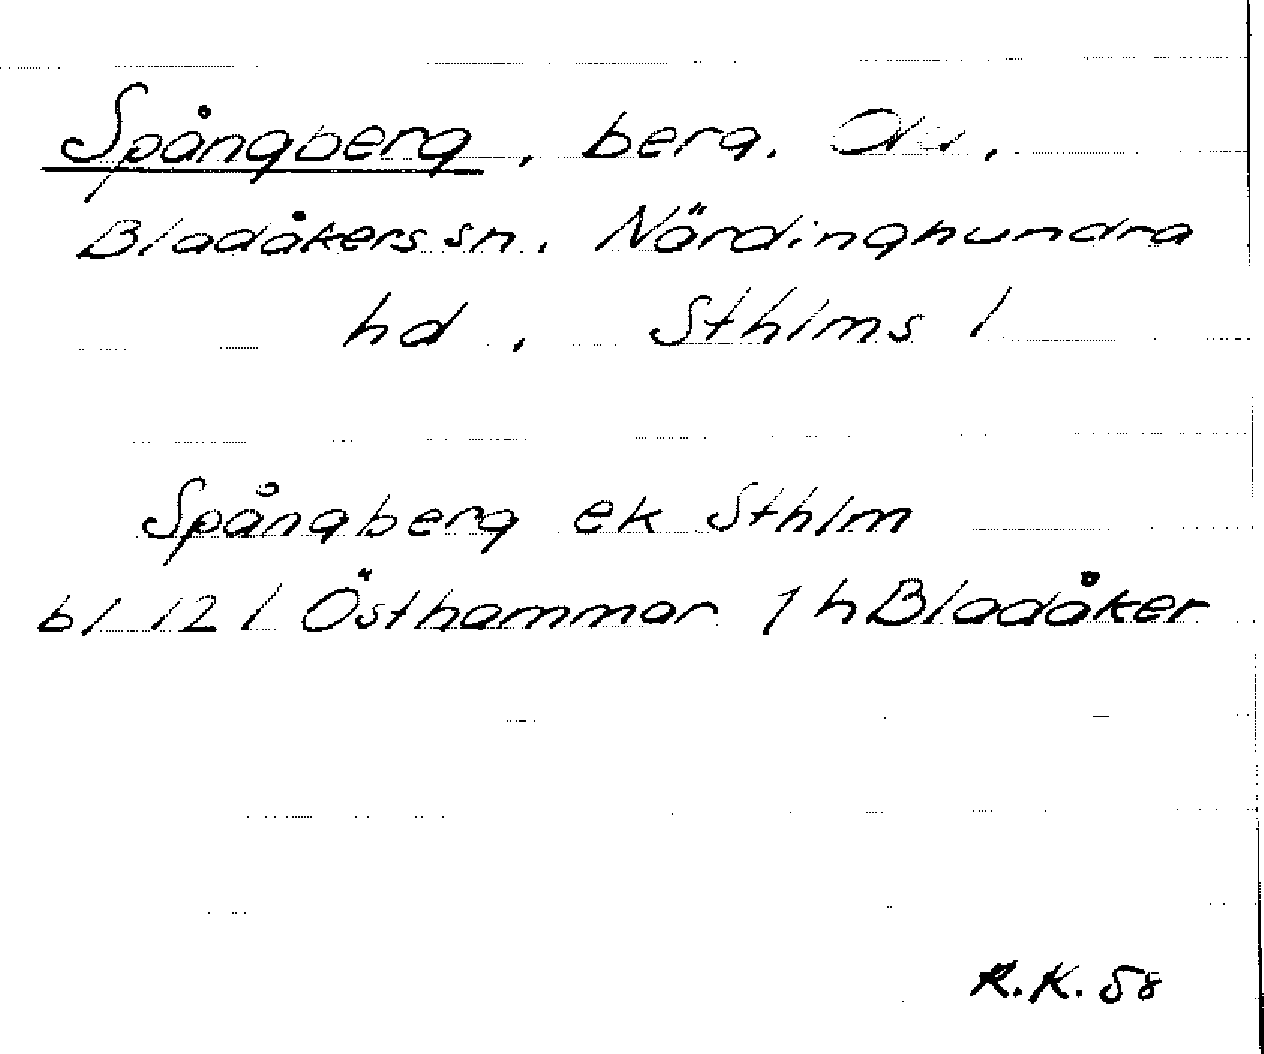 Spångberg, berg.
Bladåkers sn, Närdinghundra
hd, Sthlms l
Spångberg ek Sthlm
bl 12 l Östhammar 1 h Bladåker
R.K. 58